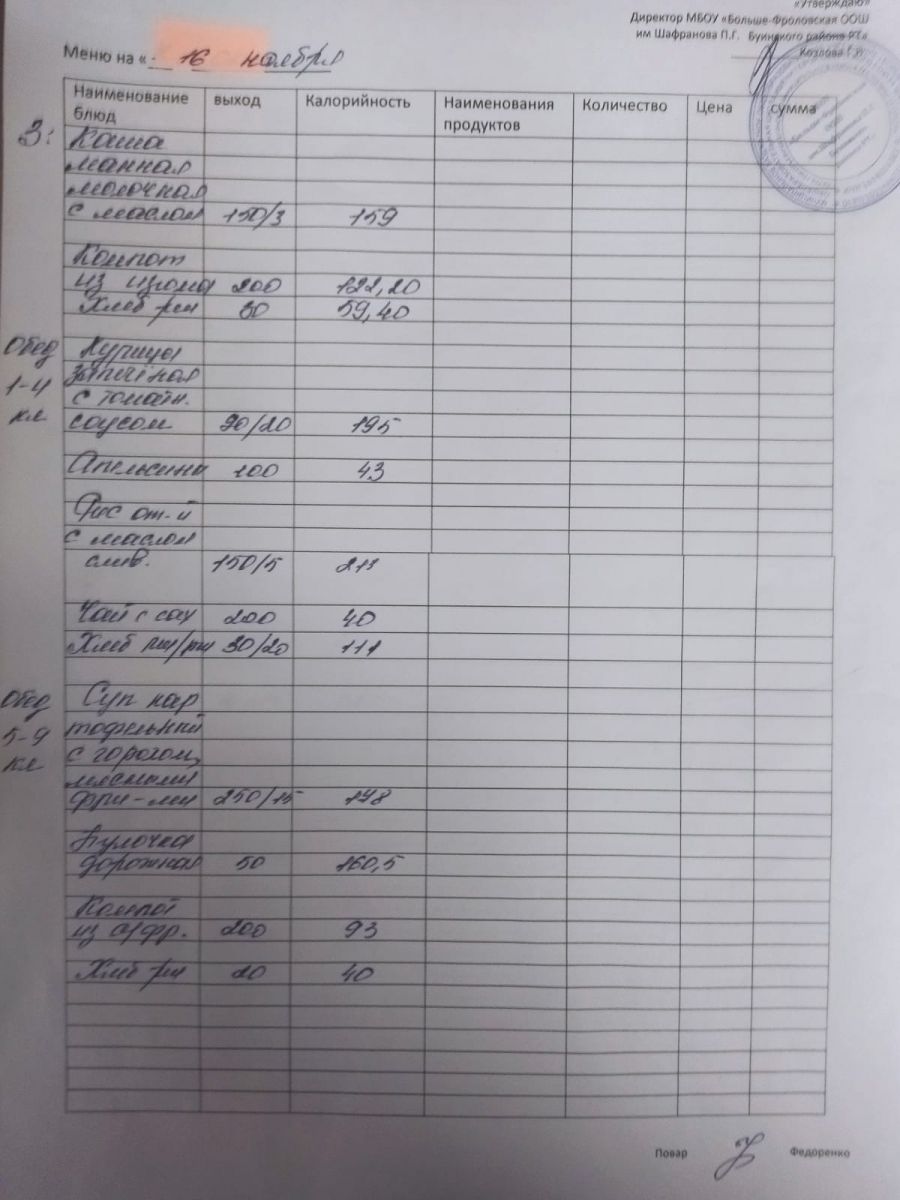 «Утверждаю»
Директор МБОУ «Больше-Фроловская ООШ
им Шафранова П.Г. Буинского района РТ»
Козлова Г.В.
Меню на « 16 ноября
Наименование блюд выход Калорийность Наименования продуктов Количество Цена сумма
З:
Каша
манная
молочная
с маслом 150/3 159
Компот
из изюма 200 122,20
Хлеб рж 30 59,40
Обед
1-4
кл
Курица
запечёная
с томатн.
соусом 90/20 195
Апельсины 100 43
Рис от-й
с маслом
слив. 150/5 211
Чай с сах 200 40
Хлеб пш/рж 30/20 111
Обед
5-9
кл
Суп кар
тофельный
с горохом,
мясными
фри-ми 250/15 148
Булочка
дорожная 50 160,5
Компот
из с/фр. 200 93
Хлеб рж 20 40
Повар Федоренко